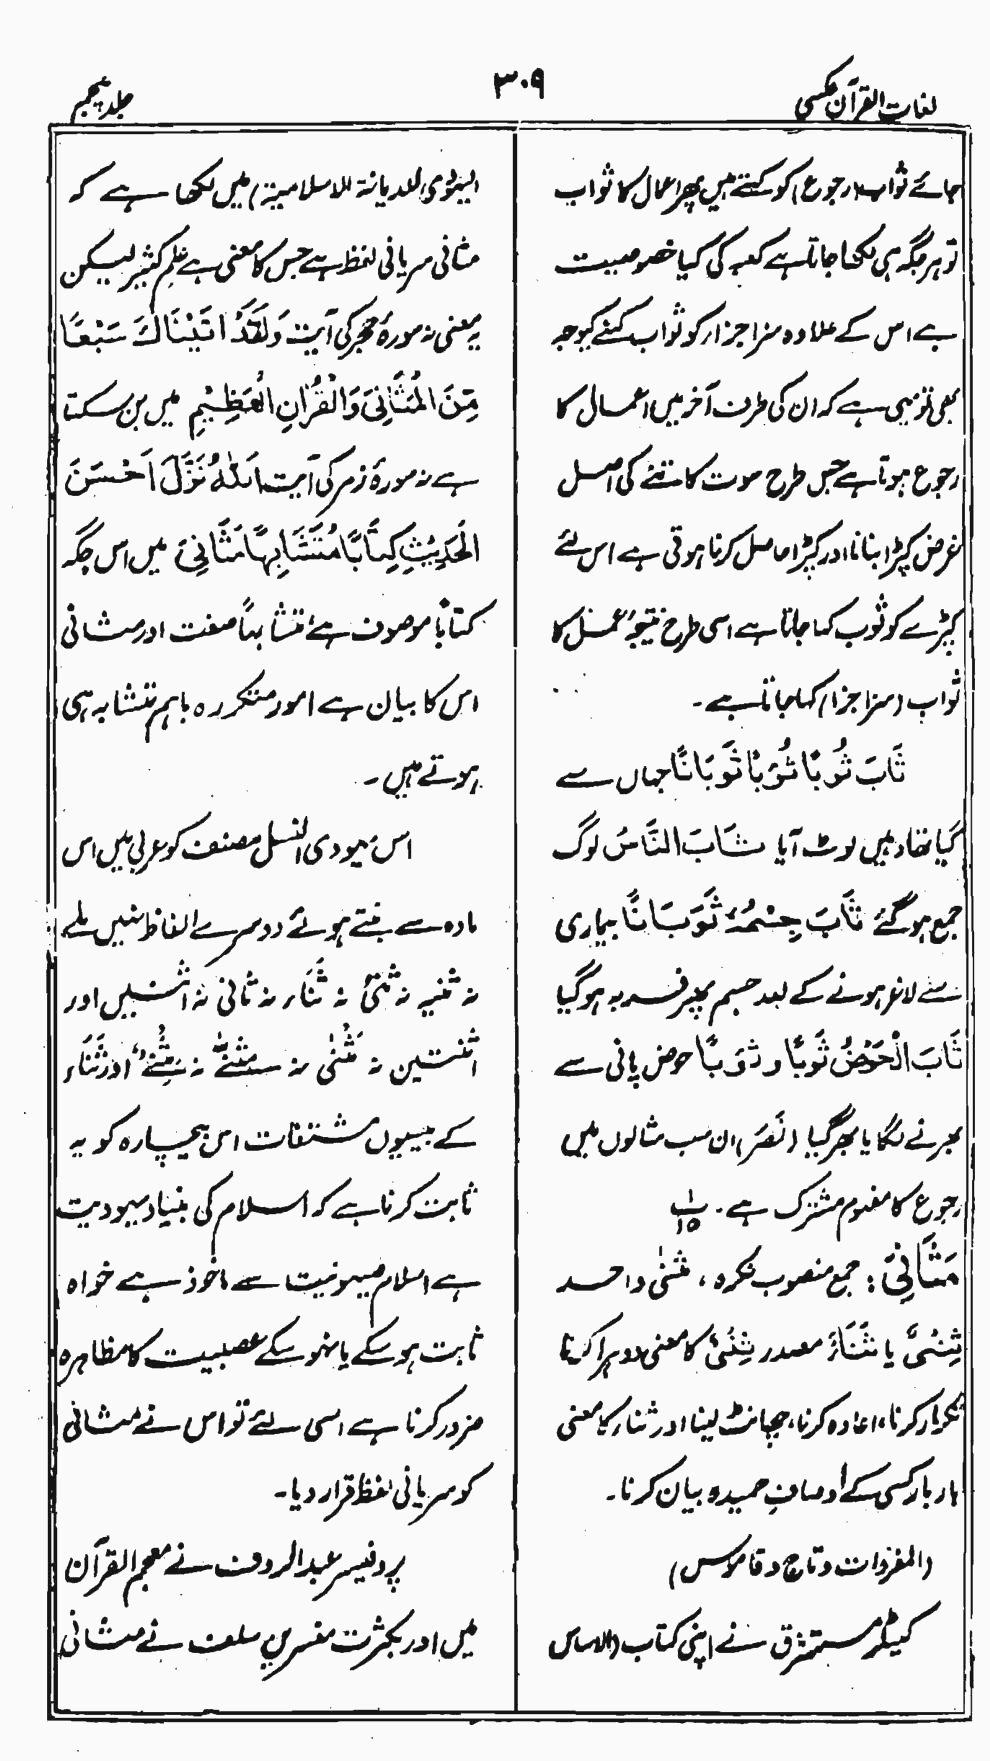 لغات القرآن عکسی
۳۰۹
جلد پنجم
جائے ثواب (رجوع) کو کہتے ہیں پھر اعمال کا ثواب
تو ہر جگہ ہی لکھا جاتا ہے کعبہ کی کیا خصوصیت
ہے اس کے علاوہ سزا جزا کو ثواب کہنے کی وجہ
بھی تو یہی ہے کہ ان کی طرف آخر میں اعمال کا
رجوع ہوتا ہے جس طرح سوت کاتنے کی اصل
غرض کپڑا بنانا اور کپڑا حاصل کرنا ہوتی ہے اس لئے
کپڑے کو ثوب کہا جاتا ہے اسی طرح نتیجۂ عمل کا
ثواب (سزا جزا) کہا جاتا ہے۔
ثَابَ ثُوبًا ثُوَبًا ثَوَبَانًا جہاں سے
گیا تھا وہیں لوٹ آیا ثَابَ النَّاسُ لوگ
جمع ہو گئے ثَابَ جِسْمُہٗ ثَوَبَانًا بیماری
سے لاغر ہونے کے بعد جسم پھر فربہ ہو گیا
ثَابَ الْحَوْضُ ثَوبًا و ثوَبًا حوض پانی سے
بھرنے لگا یا بھر گیا (نَصَرَ) ان سب مثالوں میں
رجوع کا مفہوم مشترک ہے۔
مَثَانِیَ: جمع منصوب نکرہ، مَثْنٰی واحد
ثِنْیٌ یا ثَنَاءٌ مصدر ثِنْیٌ کا معنی دوہرا کرنا
تکرار کرنا، اعادہ کرنا، چھانٹ لینا اور ثناء کا معنی
بار بار کسی کے اوصافِ حمیدہ بیان کرنا۔
(المفردات و تاج و قاموس)
مستشرق نے اپنی کتاب (الاساس
الیہودی للدیانۃ الاسلامیۃ) میں لکھا ہے کہ
مثانی سریانی لفظ ہے جس کا معنی ہے علم کثیر لیکن
یہ معنی نہ سورۂ حجر کی آیت وَلَقَدْ اٰتَیْنَاكَ سَبْعًا
مِّنَ الْمَثَانِیْ وَالْقُرْاٰنِ الْعَظِیْمِ میں بن سکتا
ہے نہ سورۂ زمر کی آیت اَللّٰهُ نَزَّلَ اَحْسَنَ
الْحَدِیْثِ كِتَابًا مُتَشَابِہًا مَثَانِیَ میں اس جگہ
کتابًا موصوف ہے مُتشابہاً صفت اور مثانی
اس کا بیان ہے امور متکررہ باہم متشابہ ہی
ہوتے ہیں۔
اس یہودی النسل مصنف کو عربی میں اس
مادہ سے بنتے ہوئے دوسرے الفاظ نہیں ملے
نہ تثنیہ نہ ثنیٌ نہ ثَنَاء نہ ثانی نہ اثنین اور
اثنتین نہ مَثْنٰی نہ اور ثَنَاء
کے بیسیوں مشتقات اس بیچارہ کو یہ
ثابت کرنا ہے کہ اسلام کی بنیاد یہودیت
ہے اسلام صیہونیت سے ماخوذ ہے خواہ
ثابت ہو سکے یا نہ ہو سکے عصبیت کا مظاہرہ
ضرور کرنا ہے اسی لئے تو اس نے مثانی
کو سریانی لفظ قرار دیا۔
پروفیسر عبدالرؤف نے معجم القرآن
میں اور بکثرت مفسرین سلف نے مثانی